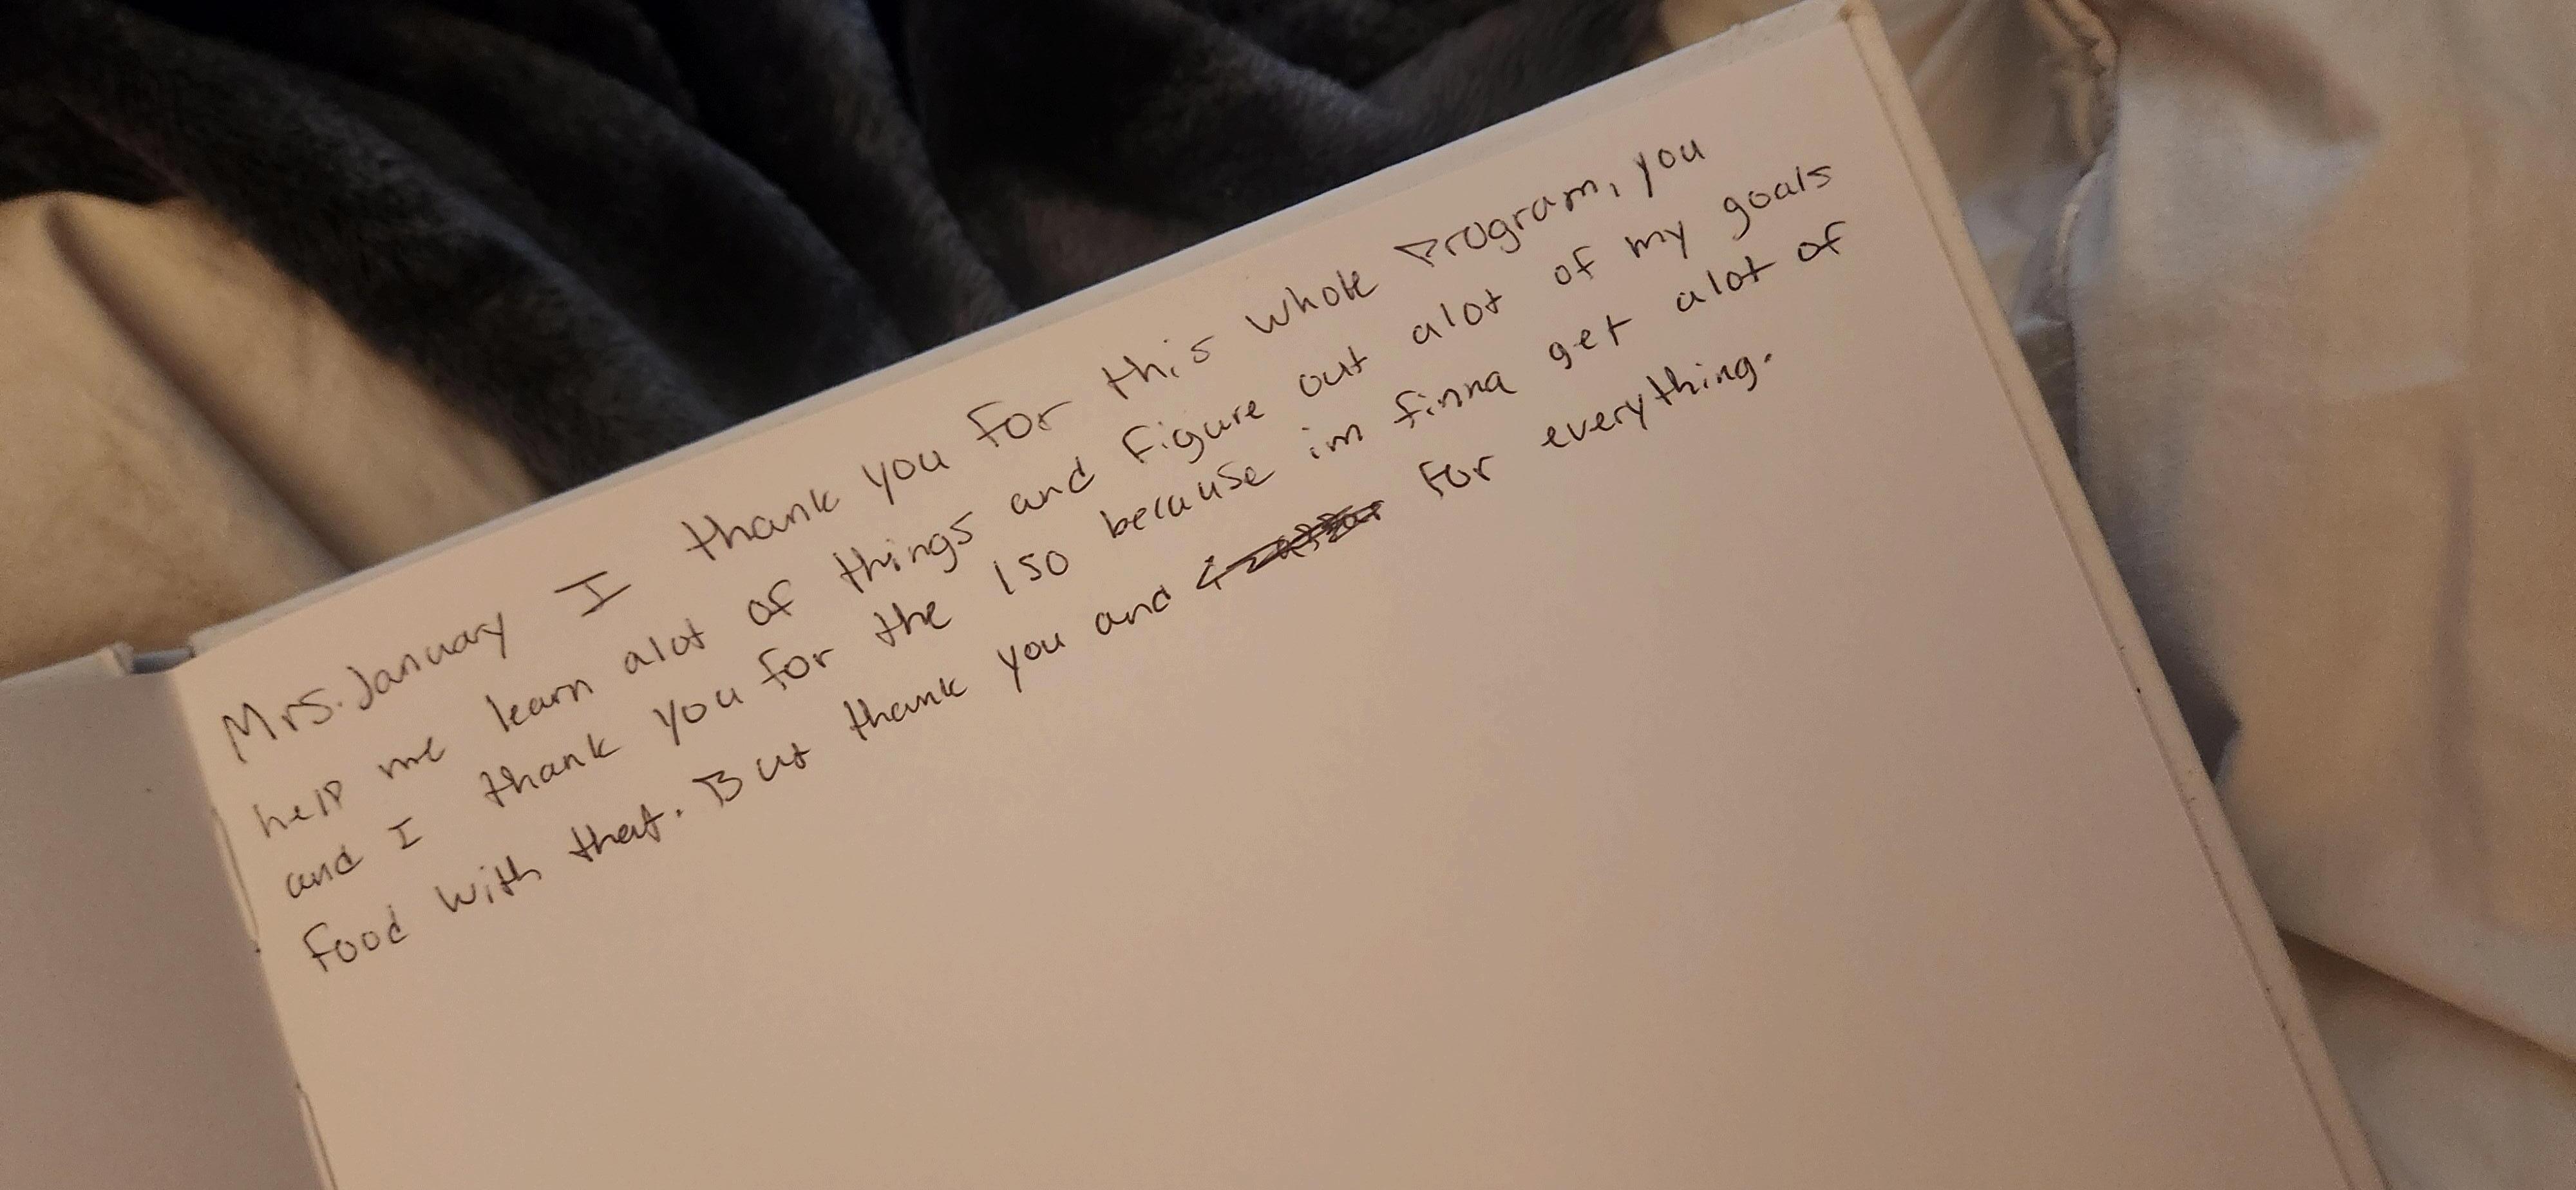 Mrs. January I thank you for this whole Program, you
help me learn alot of things and figure out alot of my goals
and I thank you for the 150 because im finna get alot of
food with that. But thank you and for everything.